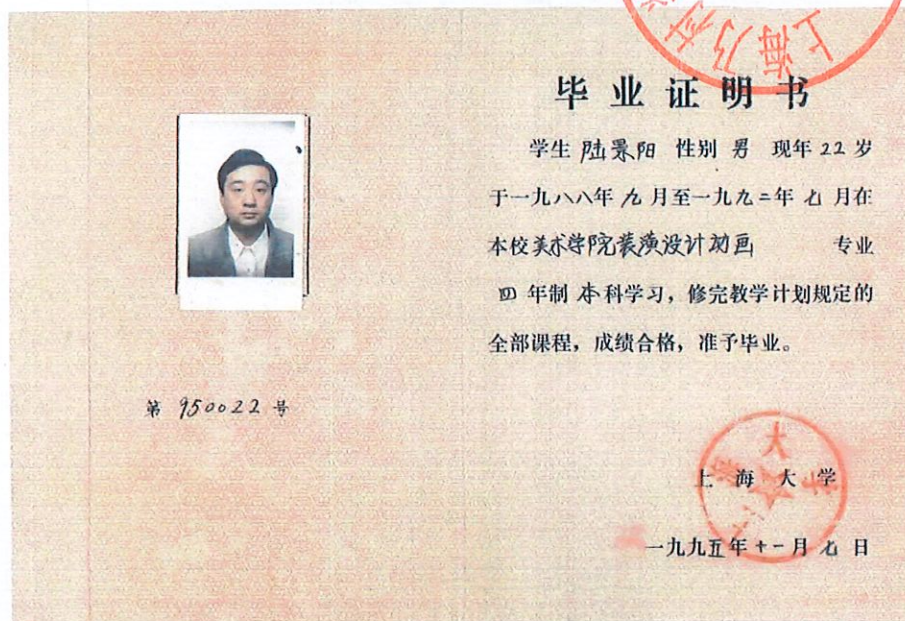 毕业证明书
学生 陆景阳 性别 男 现年 22 岁
于一九八八年 九 月至一九九二年 七 月在
本校美术学院装潢设计动画 专业
四 年制 本科学习，修完教学计划规定的
全部课程，成绩合格，准予毕业。
第 950022 号
上海大学
一九九五年十一月七日
上海乃村
上海大学